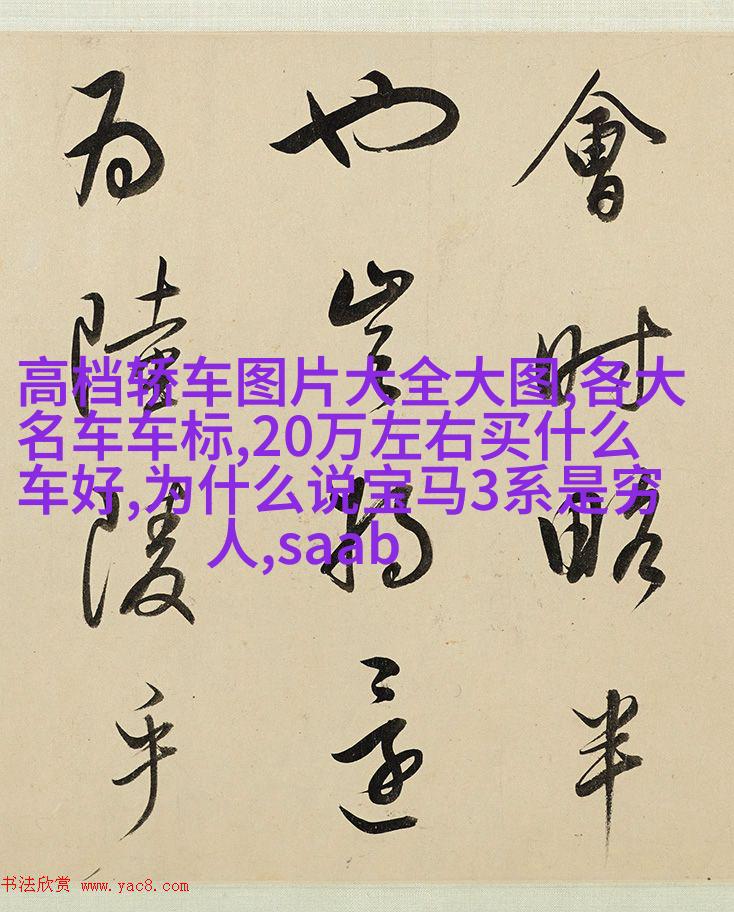 會時略半
也豈獨
為陵乎
高档轿车图片大全大图,各大
名车车标,20万左右买什么
车好,为什么说宝马3系是穷
人,saab
书法欣赏 www.yac8.com